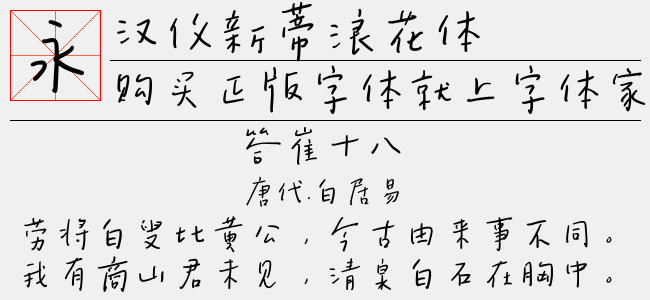 永
汉仪新蒂浪花体
购买正版字体就上字体家
答崔十八
唐代.白居易
劳将白叟比黄公，今古由来事不同。
我有商山君未见，清泉白石在胸中。